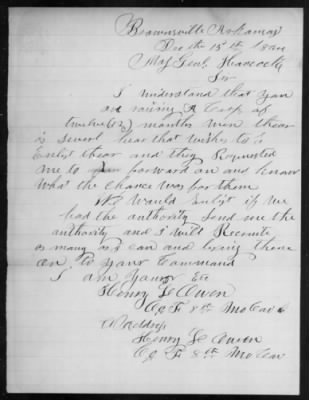 Brownsville Arkansas
Dec the 15th 1864
Maj Genl. Hancock
Sir
I understand that you
are raising A Corp of
twelve (12) months men thear
is severl hear that wishes to
Enlist thear and they Requested
me to forward on and know
What the chance was for them
We Would Enlist if we
had the authority Send me the
authority and I will Recruite
as many as I can and bring them
on to your Command
I am yours Etc
Henry Le Owen
Co F 8th Mo Cav
Address
Henry Le Owen
Co F 8th Mo Cav